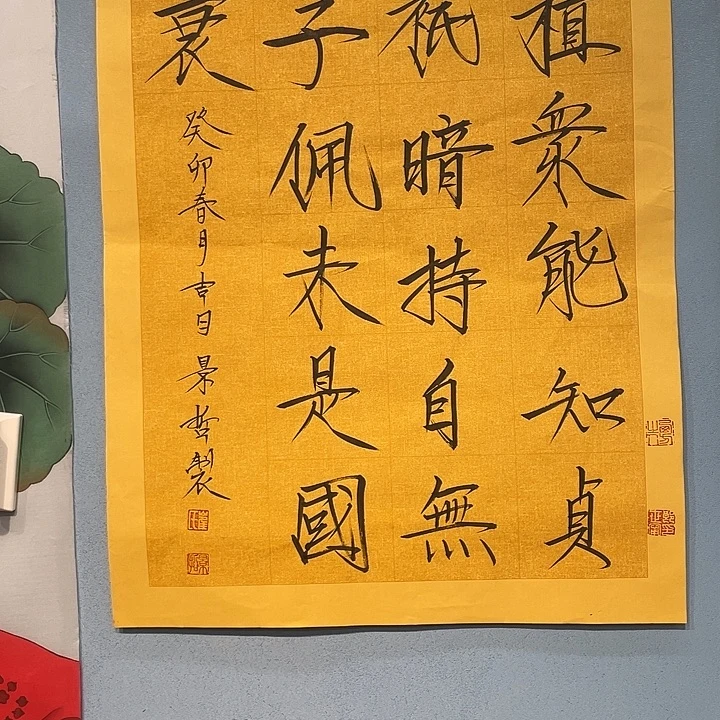 植衆能知貞
祇暗持自無
子佩未是國
衰
癸卯春月吉日景哲製